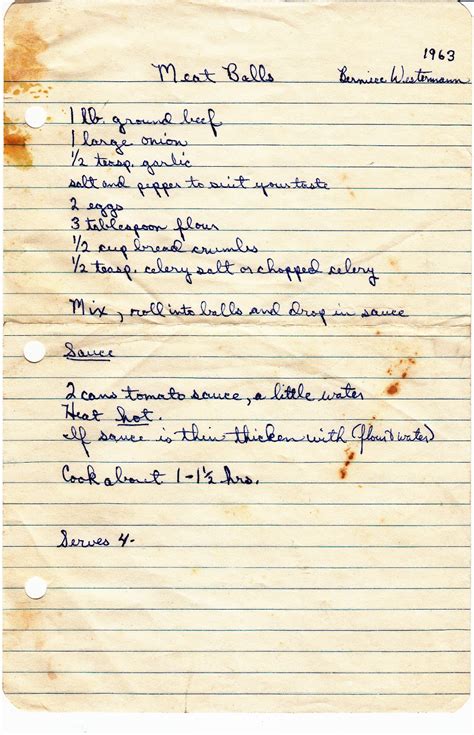 1963
Meat Balls Berniece Westermann
1 lb. ground beef
1 large onion
1/2 teasp. garlic
salt and pepper to suit your taste
2 eggs
3 tablespoon flour
1/2 cup bread crumbs
1/2 teasp. celery salt or chopped celery
Mix, roll into balls and drop in sauce
Sauce
2 cans tomato sauce, a little water
Heat hot.
If sauce is thin thicken with (flour & water)
Cook about 1-1 1/2 hrs.
Serves 4-